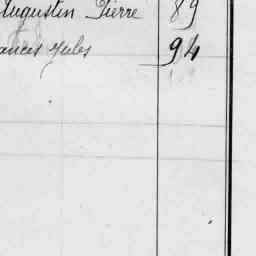 Augustin Pierre 89
ances Jules 94